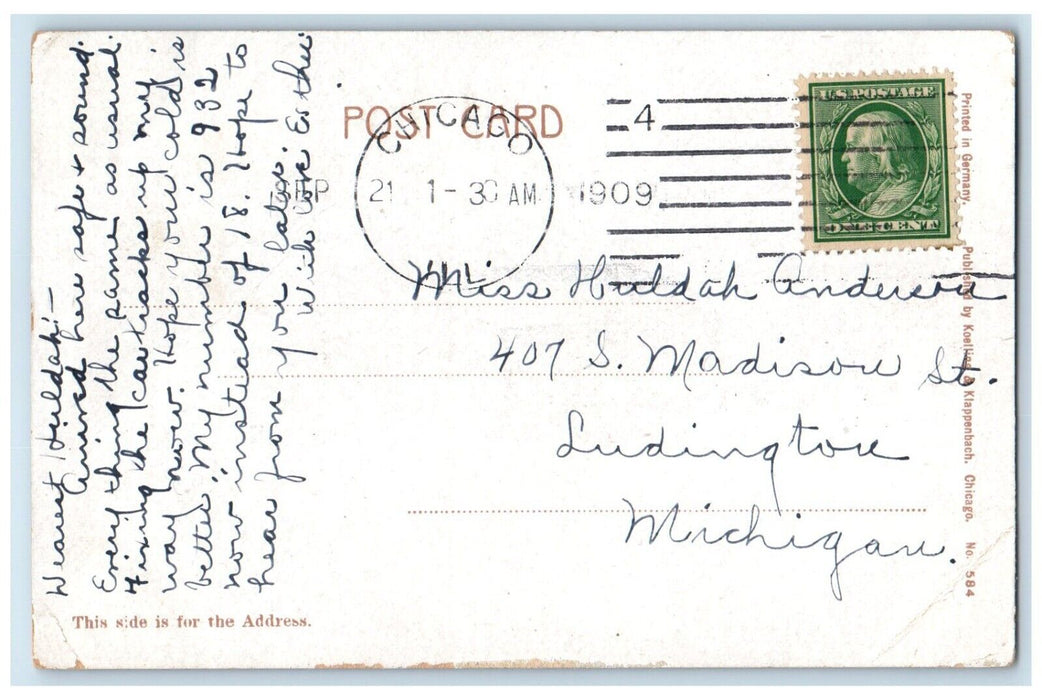 POST CARD
CHICAGO
SEP 21 1-30 AM 1909
ILL.
4
U.S. POSTAGE
ONE CENT
Dearest Huldah:-
Arrived here safe & sound.
Every thing the same as usual.
Fixing the car tracks up my
way now. Hope your cold is
better. My number is 932
now instead of 18. Hope to
hear from you later.
With love Esther
Miss Huldah Anderson
407 S. Madison St.
Ludington
Michigan.
This side is for the Address.
Printed in Germany. Published by Koelling & Klappenbach. Chicago. No. 584